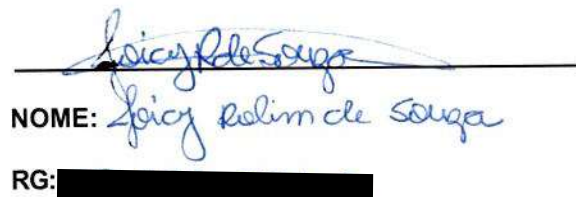 Joicy R de Souza
NOME: Joicy Rolim de Souza
RG: